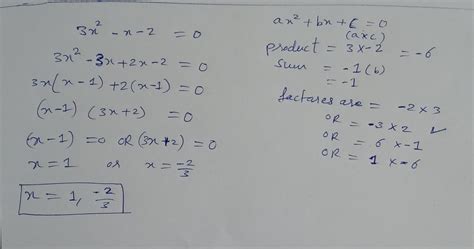 3x² - x - 2 = 0
3x² - 3x + 2x - 2 = 0
3x(x-1) + 2(x-1) = 0
(x-1) (3x+2) = 0
(x-1) = 0 OR (3x+2) = 0
x = 1 or x = -2/3
x = 1, -2/3
ax² + bx + c = 0
(axc)
product = 3 x -2 = -6
sum = -1(b)
= -1
factores are = -2 x 3
OR = -3 x 2 ✓
OR = 6 x -1
OR = 1 x -6